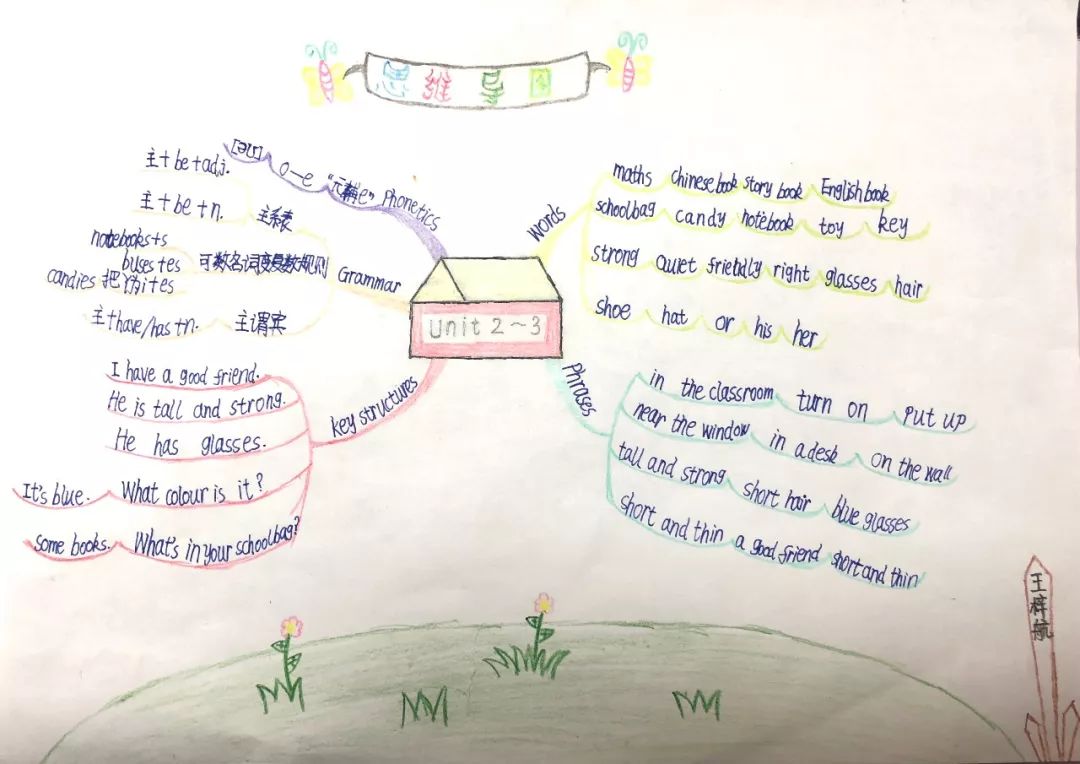 思维导图
Unit 2~3
Phonetics
"元辅e" o—e [əʊ]
Grammar
主系表
主+be+adj.
主+be+n.
可数名词变复数规则
notebooks+s
buses+es
candies 把y为i+es
主谓宾
主+have/has+n.
key structures
I have a good friend.
He is tall and strong.
He has glasses.
What colour is it? It's blue.
What's in your schoolbag? some books.
words
maths chinese book story book English book
schoolbag candy notebook toy key
strong quiet friendly right glasses hair
shoe hat or his her
Phrases
in the classroom turn on put up
near the window in a desk on the wall
tall and strong short hair blue glasses
short and thin a good friend short and thin
王梓航